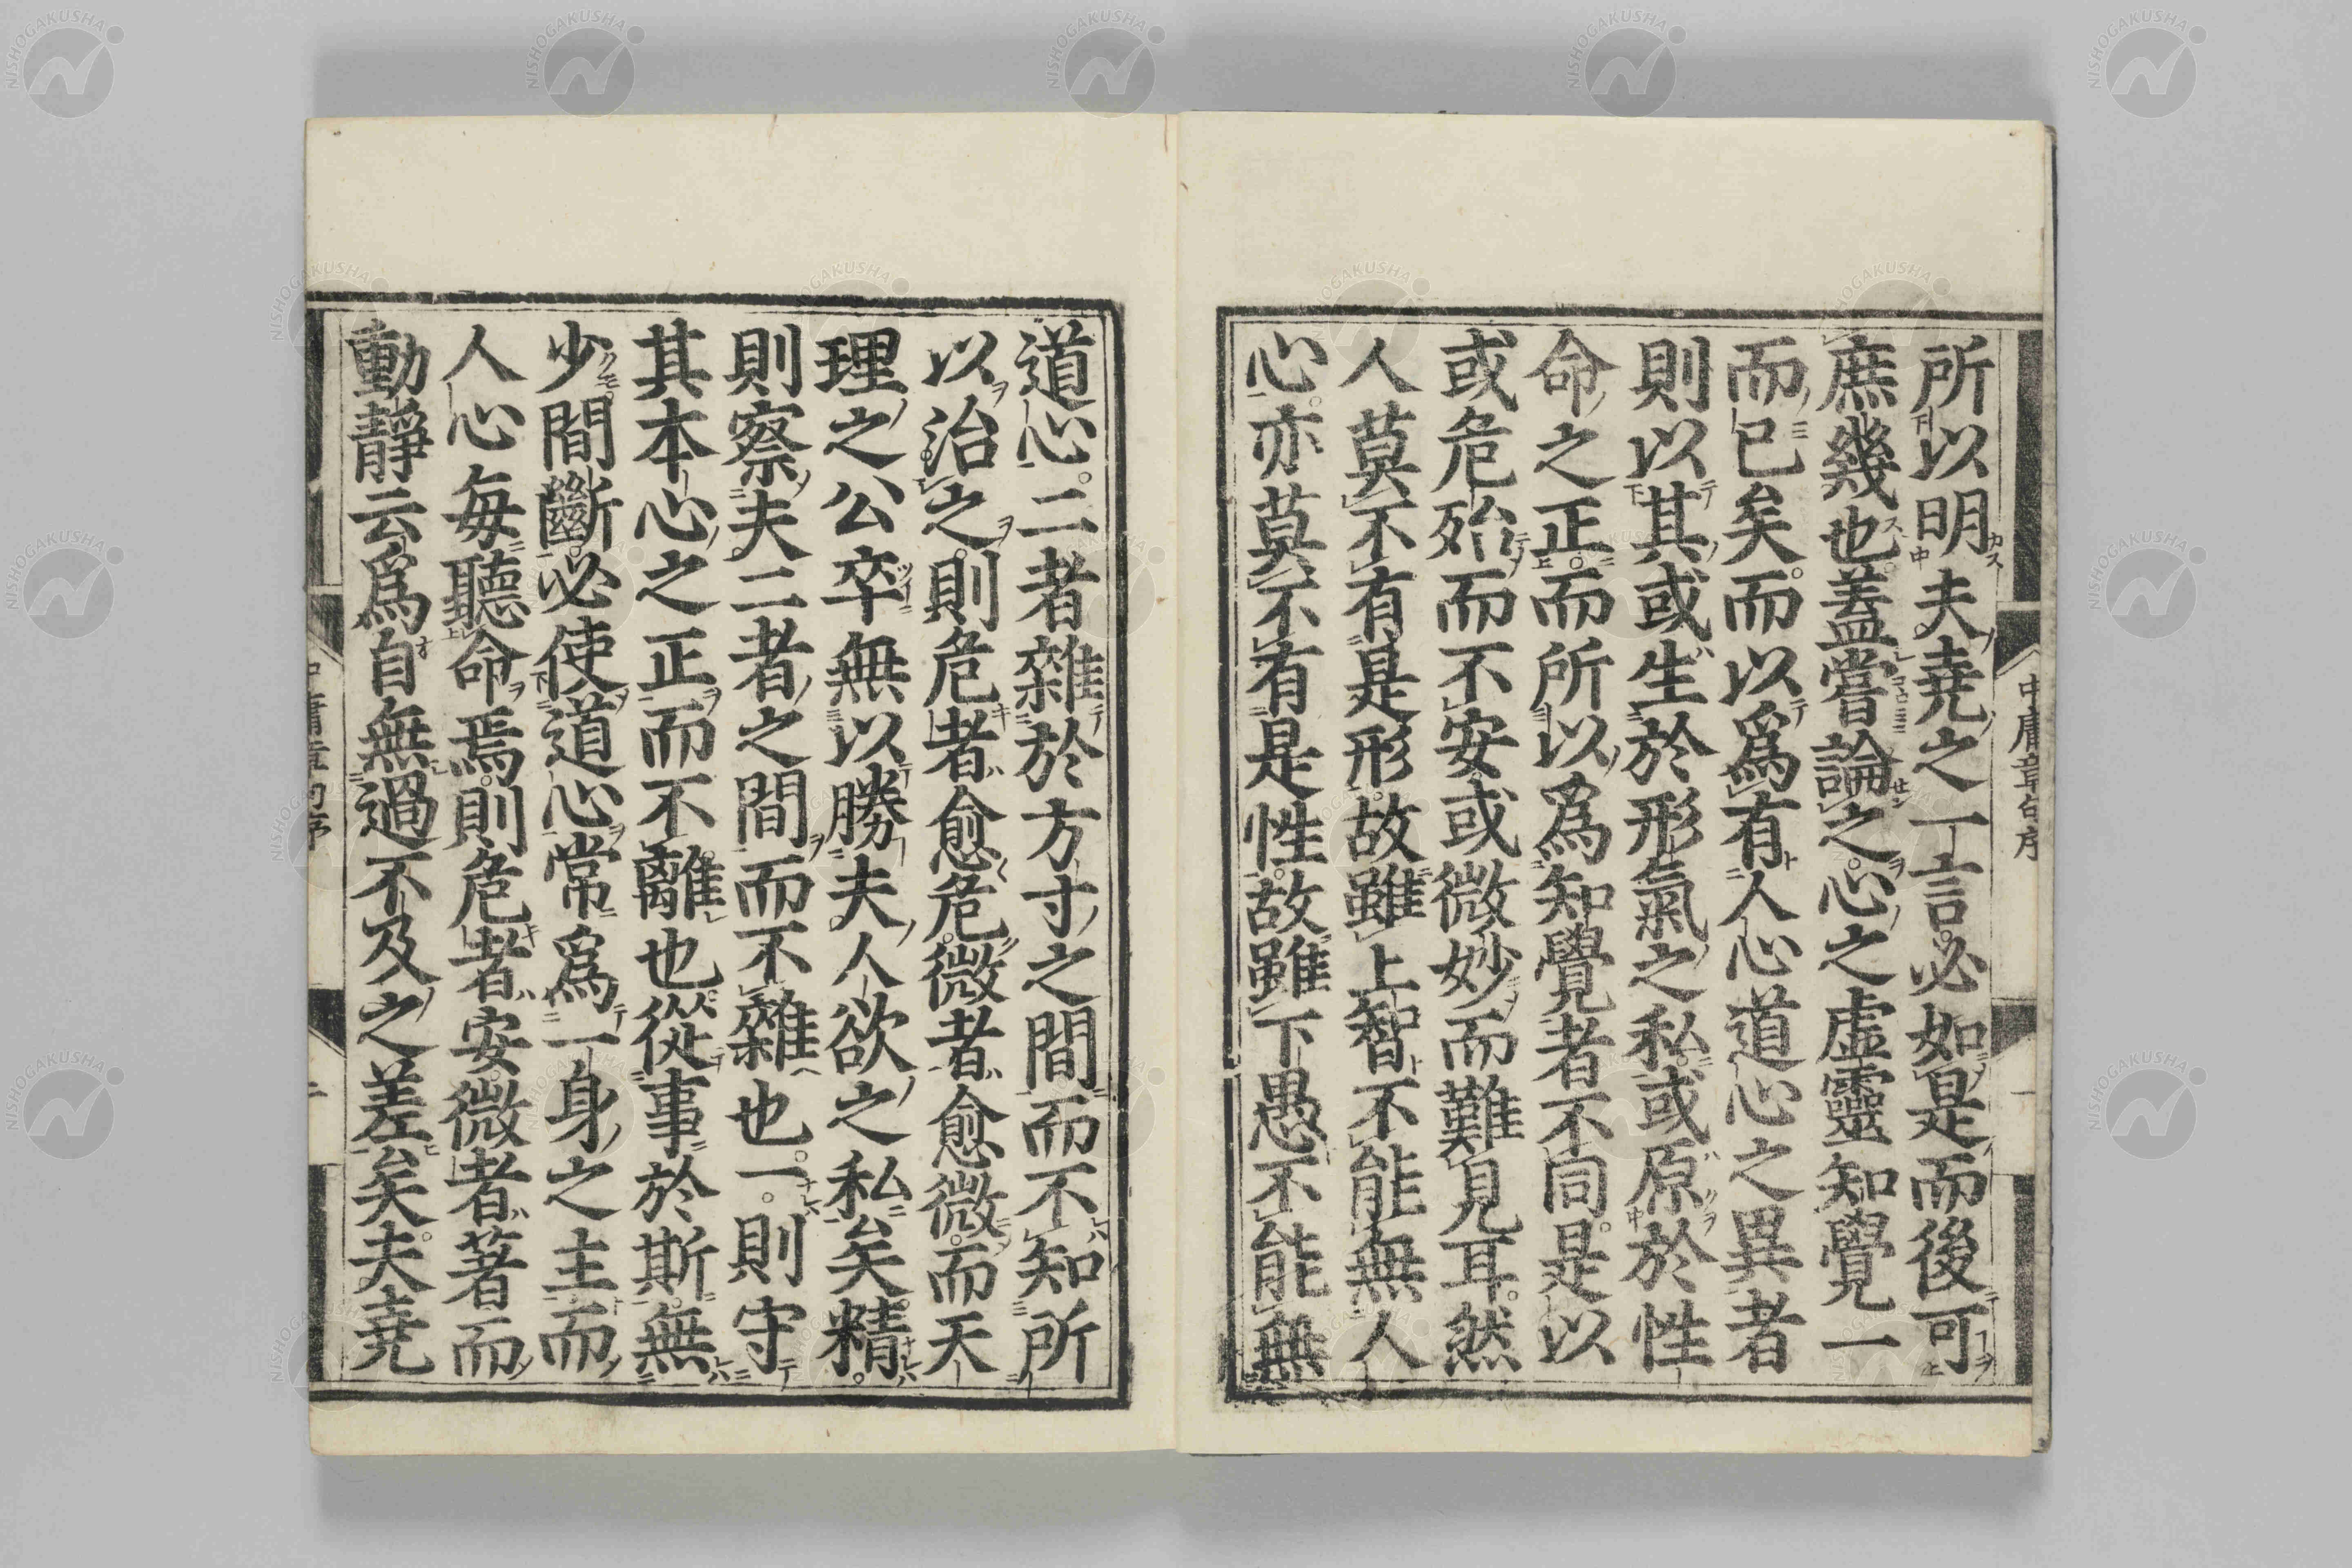 所以明夫堯之一言必如是而後可
庶幾也蓋嘗論之心之虛靈知覺一
而已矣而以爲有人心道心之異者
則以其或生於形氣之私或原於性
命之正而所以爲知覺者不同是以
或危殆而不安或微妙而難見耳然
人莫不有是形故雖上智不能無人
心亦莫不有是性故雖下愚不能無
道心二者雜於方寸之間而不知所
以治之則危者愈危微者愈微而天
理之公卒無以勝夫人欲之私矣精
則察夫二者之間而不雜也一則守
其本心之正而不離也從事於斯無
少間斷必使道心常爲一身之主而
人心每聽命焉則危者安微者著而
動靜云爲自無過不及之差矣夫堯
中庸章句序
一
NISHOGAKUSHA